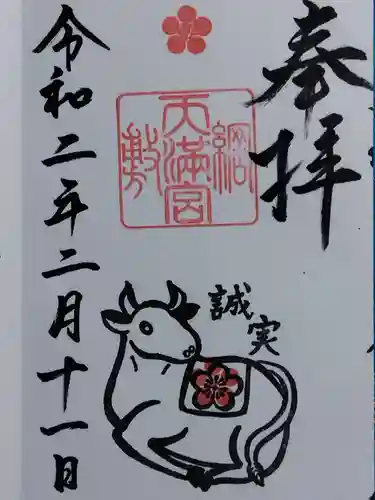 奉拝
綱敷天満宮
誠実
令和二年二月十一日